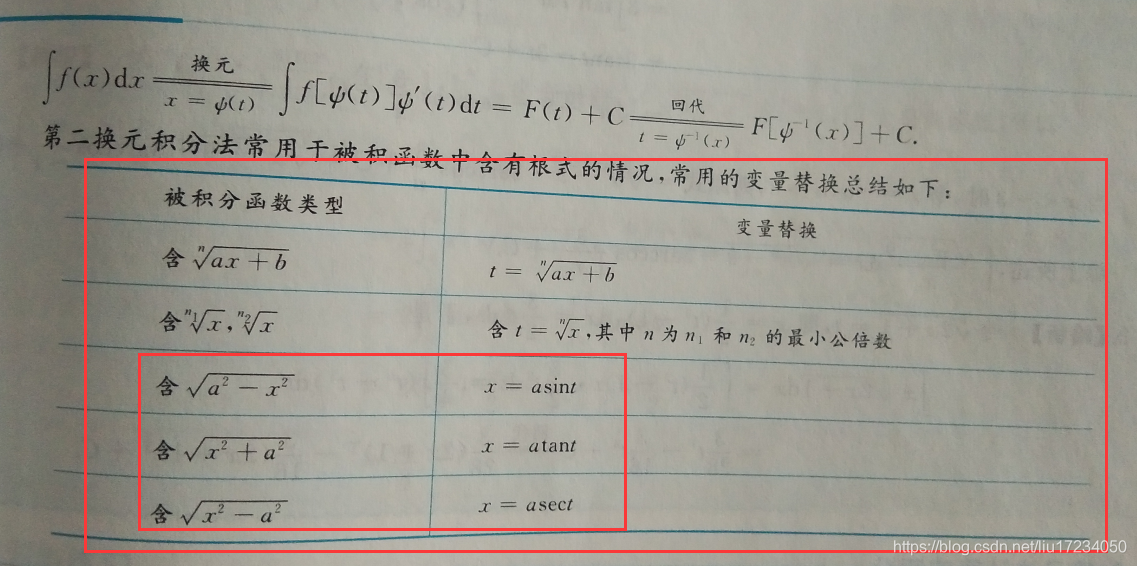 ∫f(x)dx ══(换元 / x = ψ(t))══ ∫f[ψ(t)]ψ′(t)dt = F(t) + C ══(回代 / t = ψ⁻¹(x))══ F[ψ⁻¹(x)] + C.
第二换元积分法常用于被积函数中含有根式的情况,常用的变量替换总结如下:
被积分函数类型 变量替换
含 ⁿ√(ax + b) t = ⁿ√(ax + b)
含 ⁿ¹√x, ⁿ²√x 含 t = ⁿ√x, 其中 n 为 n₁ 和 n₂ 的最小公倍数
含 √(a² − x²) x = asint
含 √(x² + a²) x = atant
含 √(x² − a²) x = asect
https://blog.csdn.net/liu17234050